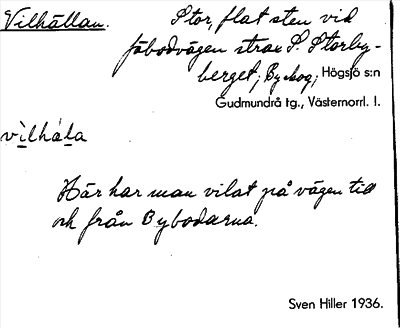 Vilhällan. Stor, flat sten vid
fäbodvägen strax S. Storby-
berget; Byskog; Högsjö s:n
Gudmundrå tg., Västernorrl. l.
vilhála
Här har man vilat på vägen till
och från Bybodarna.
Sven Hiller 1936.